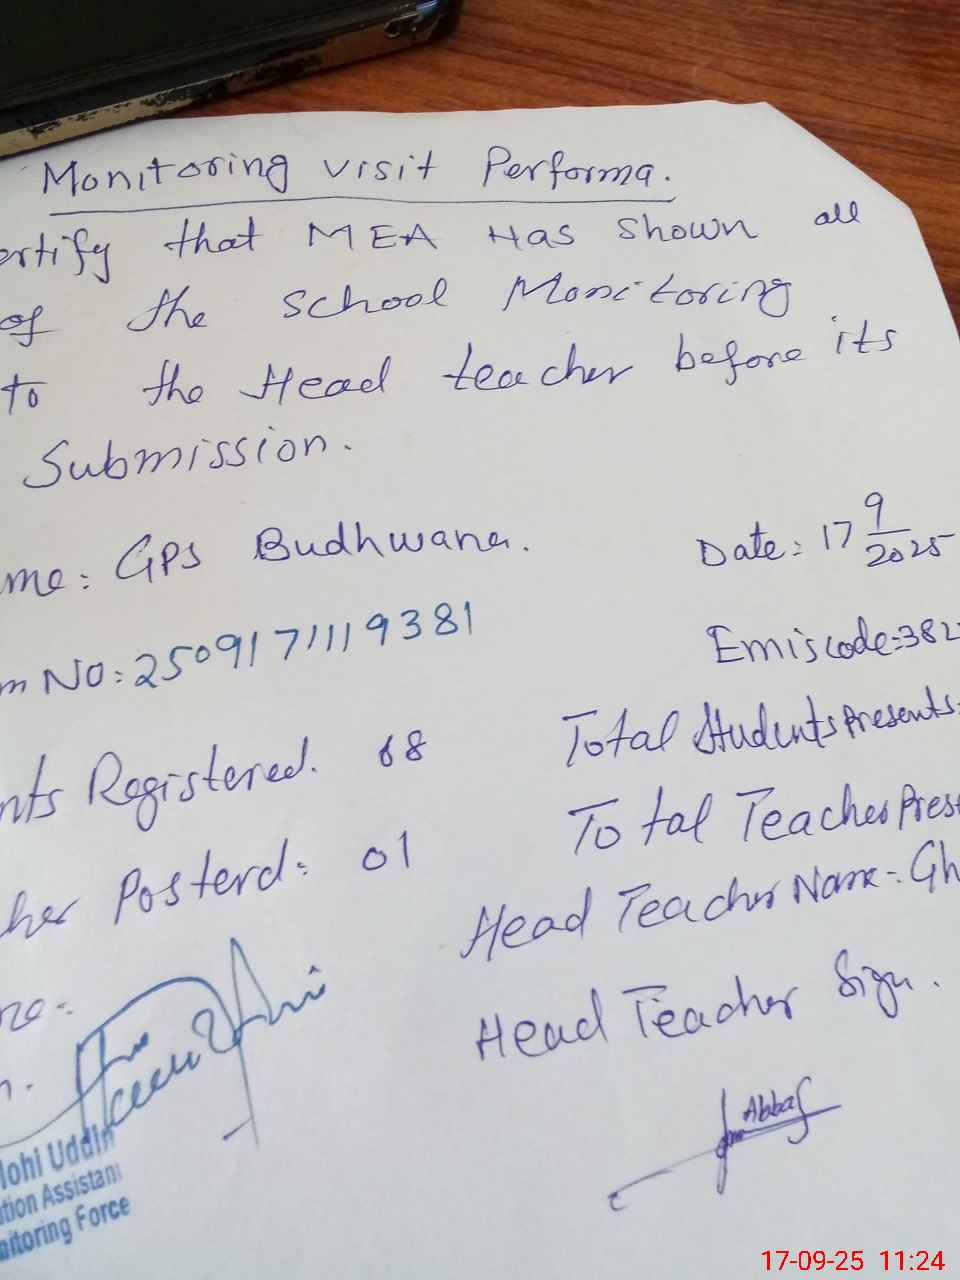 Monitoring visit Performa.
ertify that MEA Has shown all
of the School Monitoring
to the Head teacher before its
Submission.
me: GPS Budhwana.
Date: 17 9/2025
m NO: 2509171119381
Emiscode:382
nts Registered. 68
Total Students Presents:
her Posterd: 01
Total Teacher Prese
Head Teacher Name:- Gh
Head Teacher Sign.
Abbas
lohi Uddin
tion Assistant
nitoring Force
17-09-25 11:24